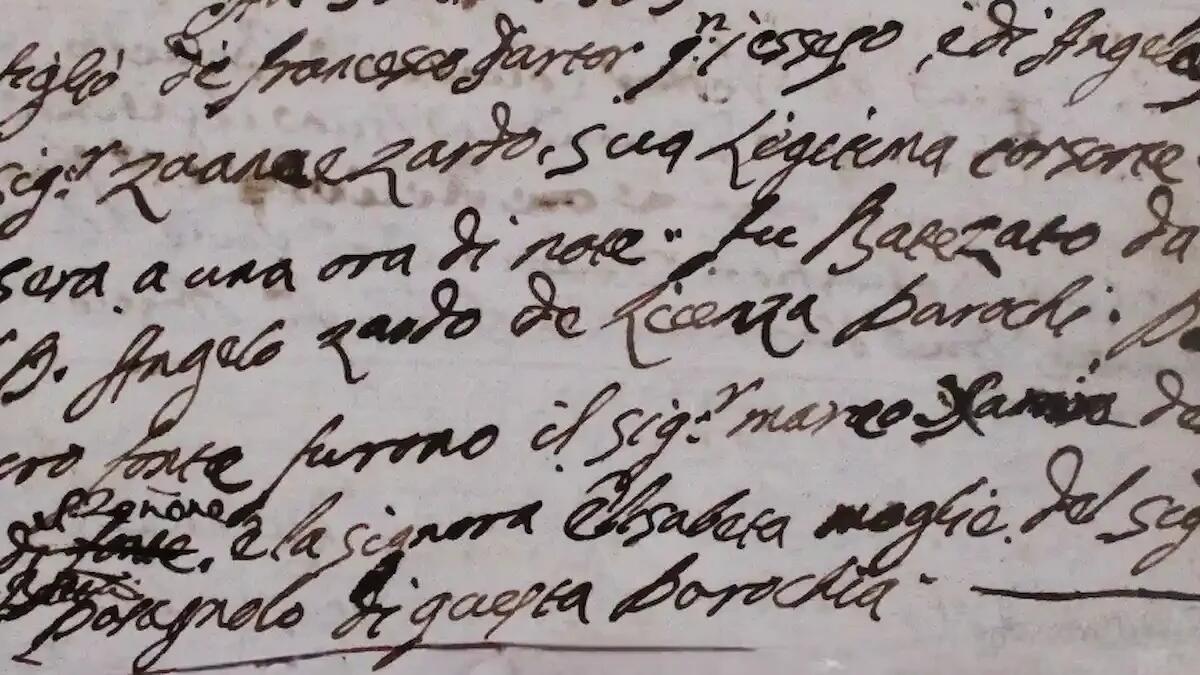 figlio di francesco Sartor q.m iessepo, e di Angela
sig.r Zuanne Zardo, sua Legitima corsorte
sera a una ora di note fu Batezato da
D. Angelo Zardo de Licenza Parochi.
cro fonte furono il sig.r marco
e la signora Elisabeta moglie del sig
Paragnolo di questa Parochia